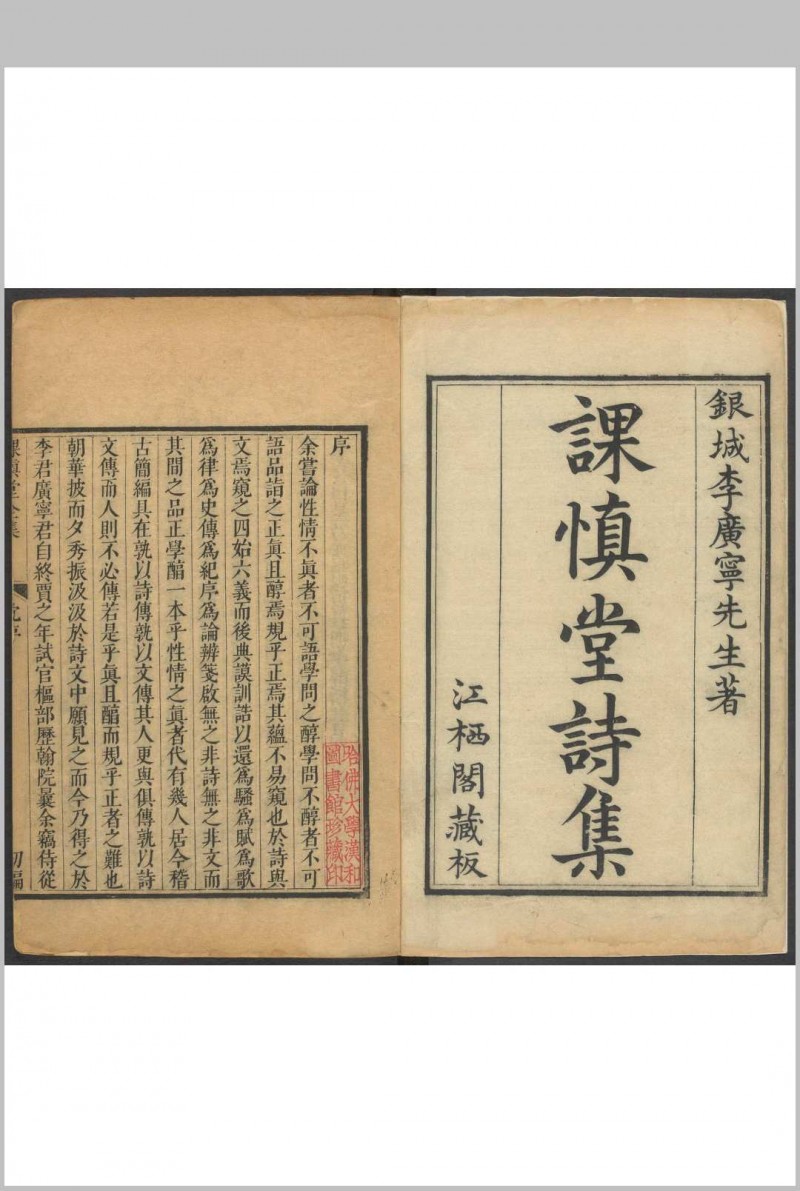 銀城李廣寧先生著
課慎堂詩集
江栖閣藏板
序
余嘗論性情不眞者不可語學問之醇學問不醇者不可
語品詣之正眞且醇焉規乎正焉其蘊不易窺也於詩與
文焉窺之四始六義而後典謨訓誥以還爲騷爲賦爲歌
爲律爲史傳爲紀序爲論辨箋啟無之非詩無之非文而
其間之品正學醕一本乎性情之眞者代有幾人居今稽
古簡編具在孰以詩傳孰以文傳其人更與俱傳孰以詩
文傳而人則不必傳若是乎眞且醕而規乎正者之難也
朝華披而夕秀振汲汲於詩文中願見之而今乃得之於
李君廣寧君自終賈之年試官樞部歷翰院曩余竊侍從
課慎堂全集
沈序
初編
哈佛大學漢和
圖書館珍藏印